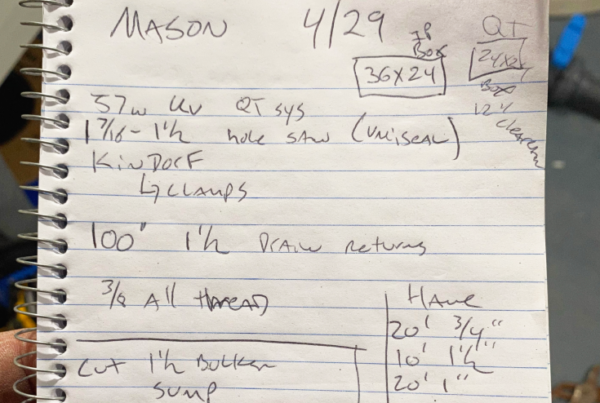 MASON 4/29
BOX
36X24
QT
24X24
BOX
12"
57w UV QT SYS
1 7/16 - 1 1/2 hole SAW (UNISEAL)
KINDORF
↳ CLAMPS
100' 1 1/2 DRAIN RETURNS
3/8 All THREAD
HAVE
20' 3/4"
10' 1 1/2"
20' 1"
CUT 1 1/2 BULKER
SUMP